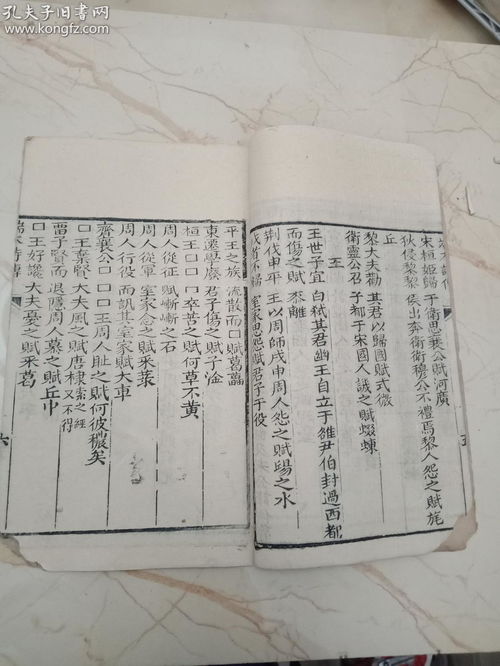 孔夫子旧书网
www.kongfz.com
宋桓姬歸于衛思襄公賦河廣
狄侵黎黎侯出奔衛衛穆公不禮焉黎人怨之賦旄
丘
黎大夫勸其君以歸國賦式微
衛靈公召子都于宋國人譏之賦蝃蝀
王
王世子宜臼弒其君幽王自立于雒尹伯封過西都
而傷之賦黍離
荆伐申平王以周師戍申周人怨之賦暘之水
戍者不歸室家思怨賦君子于役
平王之族流散而口賦葛藟
東遷學廢君子傷之賦子淦
桓王口口口卒苦之賦何草不黄
周人從征賦嶄嶄之石
周人從軍室家念之賦采菉
周人行役而訊其室家賦大車
齊襄公口口口王周人恥之賦何彼穠矣
口王棄賢大夫風之賦唐棣索之經又不得
畱子賢而退隱周人慕之賦丘中
口王好讒大夫憂之賦采葛
六